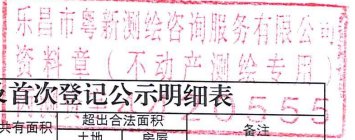 乐昌市粤新测绘咨询服务有限公司
资料章(不动产测绘专用)
首次登记公示明细表
20555
共有面积 超出合法面积 备注
土地 房屋